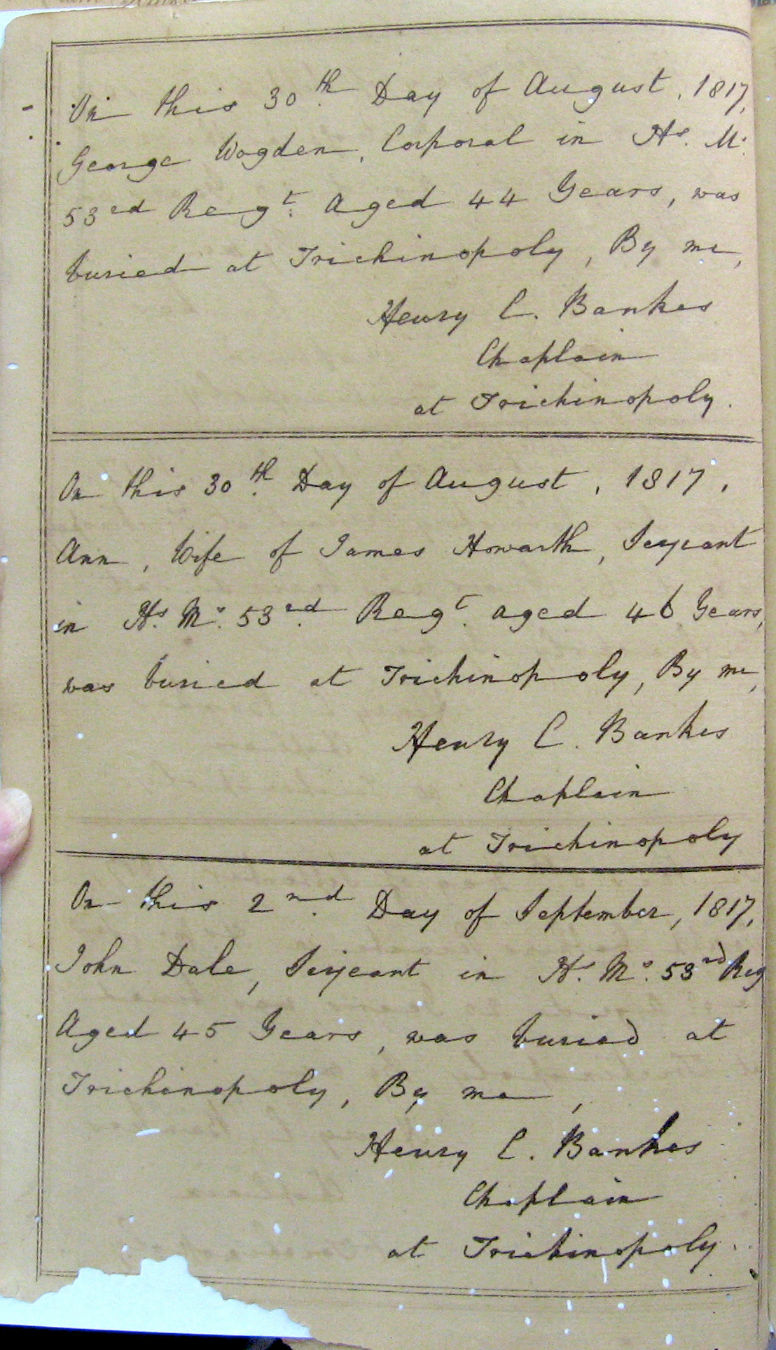 On this 30th Day of August, 1817,
George Wogden, Corporal in Hs. Ms.
53ed Regt. Aged 44 Years, was
buried at Trichinopoly, By me,
Henry C. Bankes
Chaplain
at Trichinopoly.
On this 30th Day of August, 1817,
Ann, Wife of James Howarth, Serjeant
in Hs. Ms. 53ed Regt. aged 46 Years,
was buried at Trichinopoly, By me,
Henry C. Bankes
Chaplain
at Trichinopoly
On this 2nd Day of September, 1817,
John Dale, Serjeant in Hs. Ms. 53rd Reg
Aged 45 Years, was buried at
Trichinopoly, By me,
Henry C. Bankes
Chaplain
at Trichinopoly.